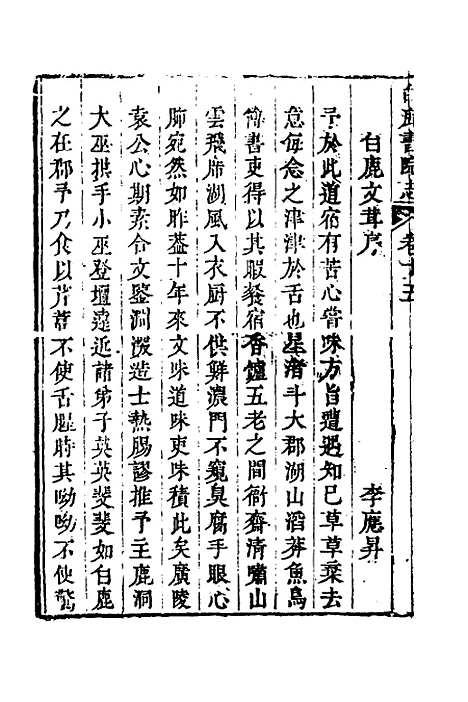 白鹿書院志 卷十五
白鹿文茸序 李應昇
予於此道宿有苦心嘗味方旨遭遇知巳草草棄去
意每念之津津於舌也星渚斗大郡湖山滔莽魚鳥
簿書吏得以其暇餐宿香爐五老之間衙齋清嘯山
雲飛席湖風入衣厨不供鮮濃門不窺臭腐手眼心
肺宛然如昨葢十年來文味道味吏味積此矣廣陵
袁公心期素合文鑒淵澂造士熱腸謬推予主鹿洞
大巫拱手小巫登壇遠近諸弟子英英斐斐如白鹿
之在郡予乃食以芹藿不使舌腥時其呦呦不使驚